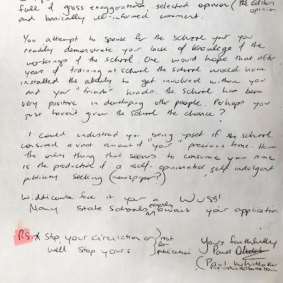 full of gross exaggerations selected opinion (the Editors opinion
and basically ill-informed comment.
You attempt to speak for the school yet you
readily demonstrate your lack of knowledge of the
workings of the school. One would hope that after
years of training at school the school would have
installed the ability to get involved within you
and your "friends" heads. The school has been
very positive in developing other people. Perhaps you
just haven't given the school the chance?
I could understand you being upset if the school
consumed a vast amount of your precious time.
the only thing that seems to consume your time
is the production of a self-opinionated self indulgent
publicity seeking (newspaper?)
face it your a WUSS!
State School await your application
PS * Stop your circulation or
well stop yours
Yours faithfully
Paul
(Paul Whittaker